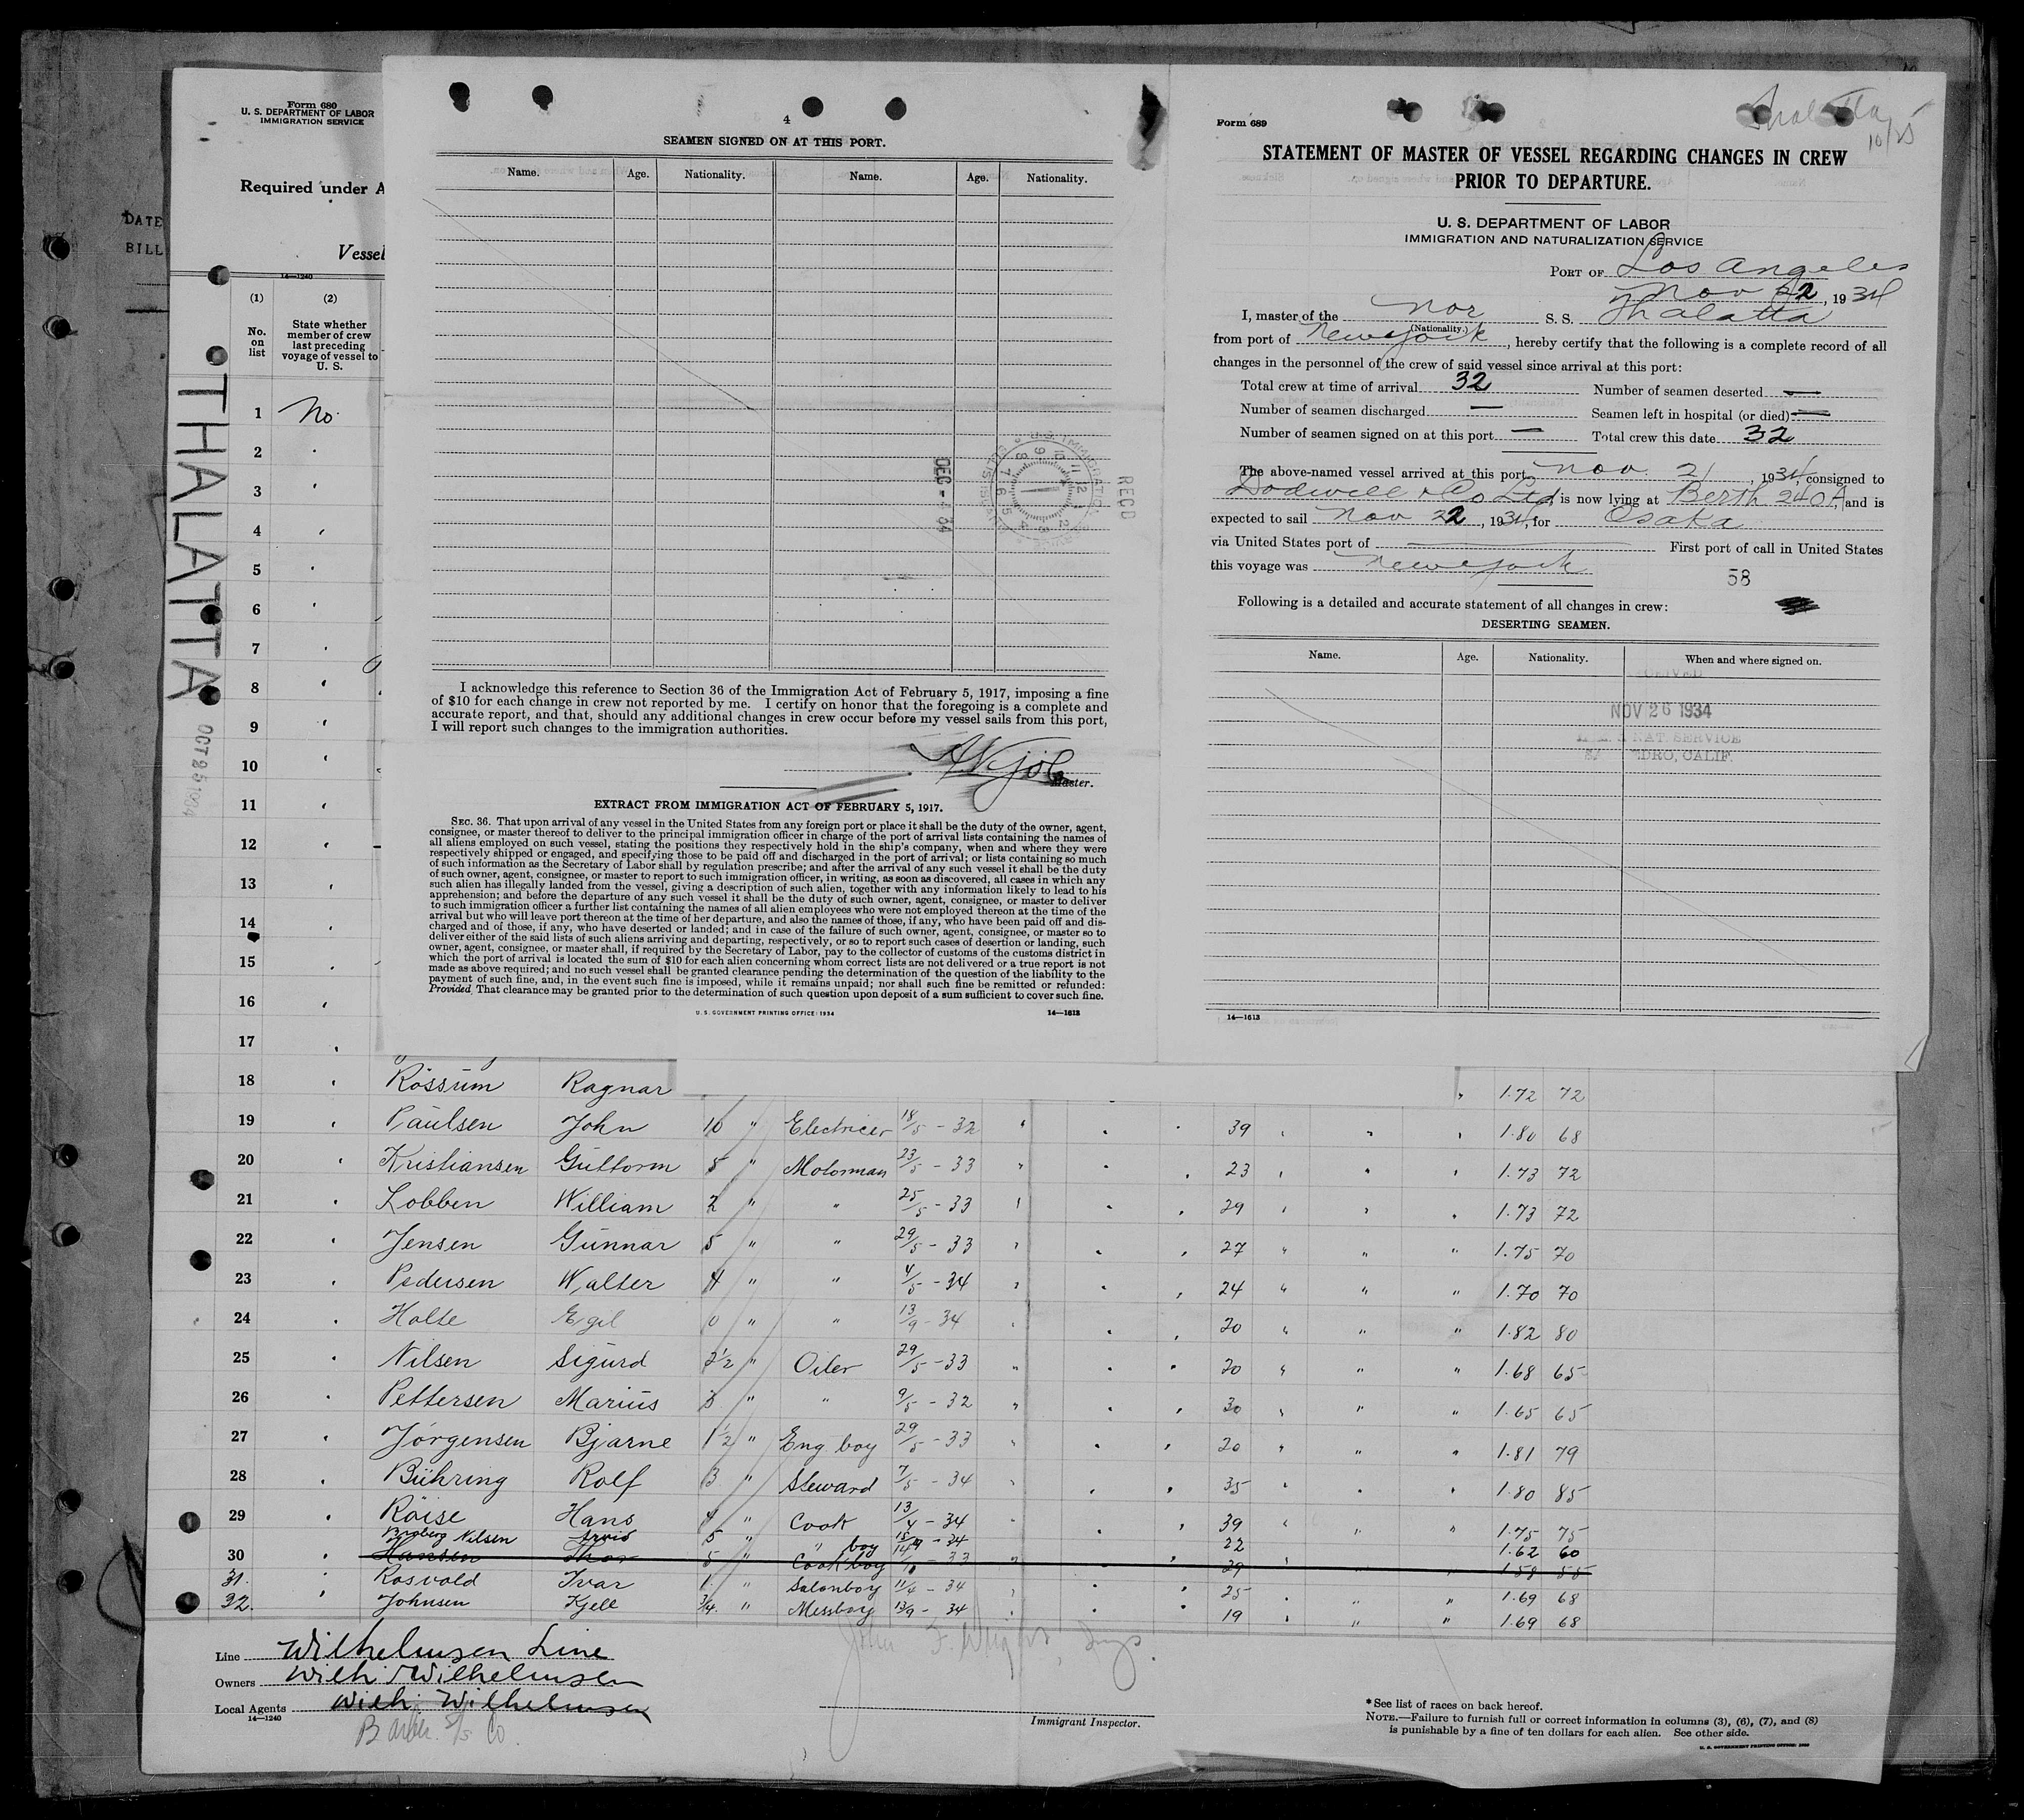 DATE
BILL
Form 680
U. S. DEPARTMENT OF LABOR
IMMIGRATION SERVICE
Required under A
Vessel
14—1240
(1) (2)
No. on list
State whether member of crew last preceding voyage of vessel to U. S.
THALATTA
OCT 25 1934
1 No.
2 "
3 "
4 "
5 "
6 "
7 "
8 "
9 "
10 "
11 "
12 "
13 "
14 "
15 "
16 "
17 "
4
SEAMEN SIGNED ON AT THIS PORT.
Name. Age. Nationality. Name. Age. Nationality.
U. S. IMMIGRATION
DEC - 34
REC'D
I acknowledge this reference to Section 36 of the Immigration Act of February 5, 1917, imposing a fine
of $10 for each change in crew not reported by me. I certify on honor that the foregoing is a complete and
accurate report, and that, should any additional changes in crew occur before my vessel sails from this port,
I will report such changes to the immigration authorities.
Master.
EXTRACT FROM IMMIGRATION ACT OF FEBRUARY 5, 1917.
SEC. 36. That upon arrival of any vessel in the United States from any foreign port or place it shall be the duty of the owner, agent,
consignee, or master thereof to deliver to the principal immigration officer in charge of the port of arrival lists containing the names of
all aliens employed on such vessel, stating the positions they respectively hold in the ship's company, when and where they were
respectively shipped or engaged, and specifying those to be paid off and discharged in the port of arrival; or lists containing so much
of such information as the Secretary of Labor shall by regulation prescribe; and after the arrival of any such vessel it shall be the duty
of such owner, agent, consignee, or master to report to such immigration officer, in writing, as soon as discovered, all cases in which any
such alien has illegally landed from the vessel, giving a description of such alien, together with any information likely to lead to his
apprehension; and before the departure of any such vessel it shall be the duty of such owner, agent, consignee, or master to deliver
to such immigration officer a further list containing the names of all alien employees who were not employed thereon at the time of the
arrival but who will leave port thereon at the time of her departure, and also the names of those, if any, who have been paid off and dis-
charged and of those, if any, who have deserted or landed; and in case of the failure of such owner, agent, consignee, or master so to
deliver either of the said lists of such aliens arriving and departing, respectively, or so to report such cases of desertion or landing, such
owner, agent, consignee, or master shall, if required by the Secretary of Labor, pay to the collector of customs of the customs district in
which the port of arrival is located the sum of $10 for each alien concerning whom correct lists are not delivered or a true report is not
made as above required; and no such vessel shall be granted clearance pending the determination of the question of the liability to the
payment of such fine, and, in the event such fine is imposed, while it remains unpaid; nor shall such fine be remitted or refunded:
Provided, That clearance may be granted prior to the determination of such question upon deposit of a sum sufficient to cover such fine.
U. S. GOVERNMENT PRINTING OFFICE: 1934 14—1613
Thalatta
10/25
Form 689
STATEMENT OF MASTER OF VESSEL REGARDING CHANGES IN CREW
PRIOR TO DEPARTURE.
U. S. DEPARTMENT OF LABOR
IMMIGRATION AND NATURALIZATION SERVICE
PORT OF Los Angeles
Nov 22, 1934
I, master of the Nor S. S. Thalatta
(Nationality.)
from port of New York, hereby certify that the following is a complete record of all
changes in the personnel of the crew of said vessel since arrival at this port:
Total crew at time of arrival 32 Number of seamen deserted —
Number of seamen discharged — Seamen left in hospital (or died) —
Number of seamen signed on at this port — Total crew this date 32
The above-named vessel arrived at this port Nov. 21, 1934, consigned to
Dodwell & Co Ltd, is now lying at Berth 240A, and is
expected to sail Nov 22, 1934, for Osaka
via United States port of — First port of call in United States
this voyage was New York
58
Following is a detailed and accurate statement of all changes in crew:
DESERTING SEAMEN.
Name. Age. Nationality. When and where signed on.
NOV 26 1934
NAT. SERVICE
EDRO, CALIF.
14—1613
18 " Rössum Ragnar " 1.72 72
19 " Paulsen John 10 " Electricer 18/5 - 32 " " " 39 " " " 1.80 68
20 " Kristiansen Guttorm 5 " Motorman 23/5 - 33 " " " 23 " " " 1.73 72
21 " Lobben William 2 " " 25/5 - 33 " " " 29 " " " 1.73 72
22 " Jensen Gunnar 5 " " 29/5 - 33 " " " 27 " " " 1.75 70
23 " Pedersen Walter 4 " " 4/5 - 34 " " " 24 " " " 1.70 70
24 " Holte Egil 0 " " 13/9 - 34 " " " 20 " " " 1.82 80
25 " Nilsen Sigurd 2½ " Oiler 29/5 - 33 " " " 20 " " " 1.68 65
26 " Pettersen Marius 3 " " 9/5 - 32 " " " 30 " " " 1.65 65
27 " Jørgensen Bjarne 1½ " Eng. boy 29/5 - 33 " " " 20 " " " 1.81 79
28 " Bühring Rolf 3 " Steward 7/5 - 34 " " " 35 " " " 1.80 85
29 " Röise Hans 4 " Cook 13/4 - 34 " " " 39 " " " 1.75 75
Nilsen Arvid 5 " " boy - 34 22 1.62 60
30 " Hansen Thor 5 " Cook boy - 33 " " 29 " " " 1.58 55
31. " Rosvold Ivar 1 " Salonboy 11/4 - 34 " " " 25 " " " 1.69 68
32. " Johnsen Kjell 3/4 " Messboy 13/9 - 34 " " " 19 " " " 1.69 68
Line Wilhelmsen Line
Owners Wilh. Wilhelmsen
Local Agents Wilh. Wilhelmsen
14—1240
Barber S/S Co.
John F.
Immigrant Inspector.
*See list of races on back hereof.
NOTE.—Failure to furnish full or correct information in columns (3), (6), (7), and (8)
is punishable by a fine of ten dollars for each alien. See other side.
U. S. GOVERNMENT PRINTING OFFICE